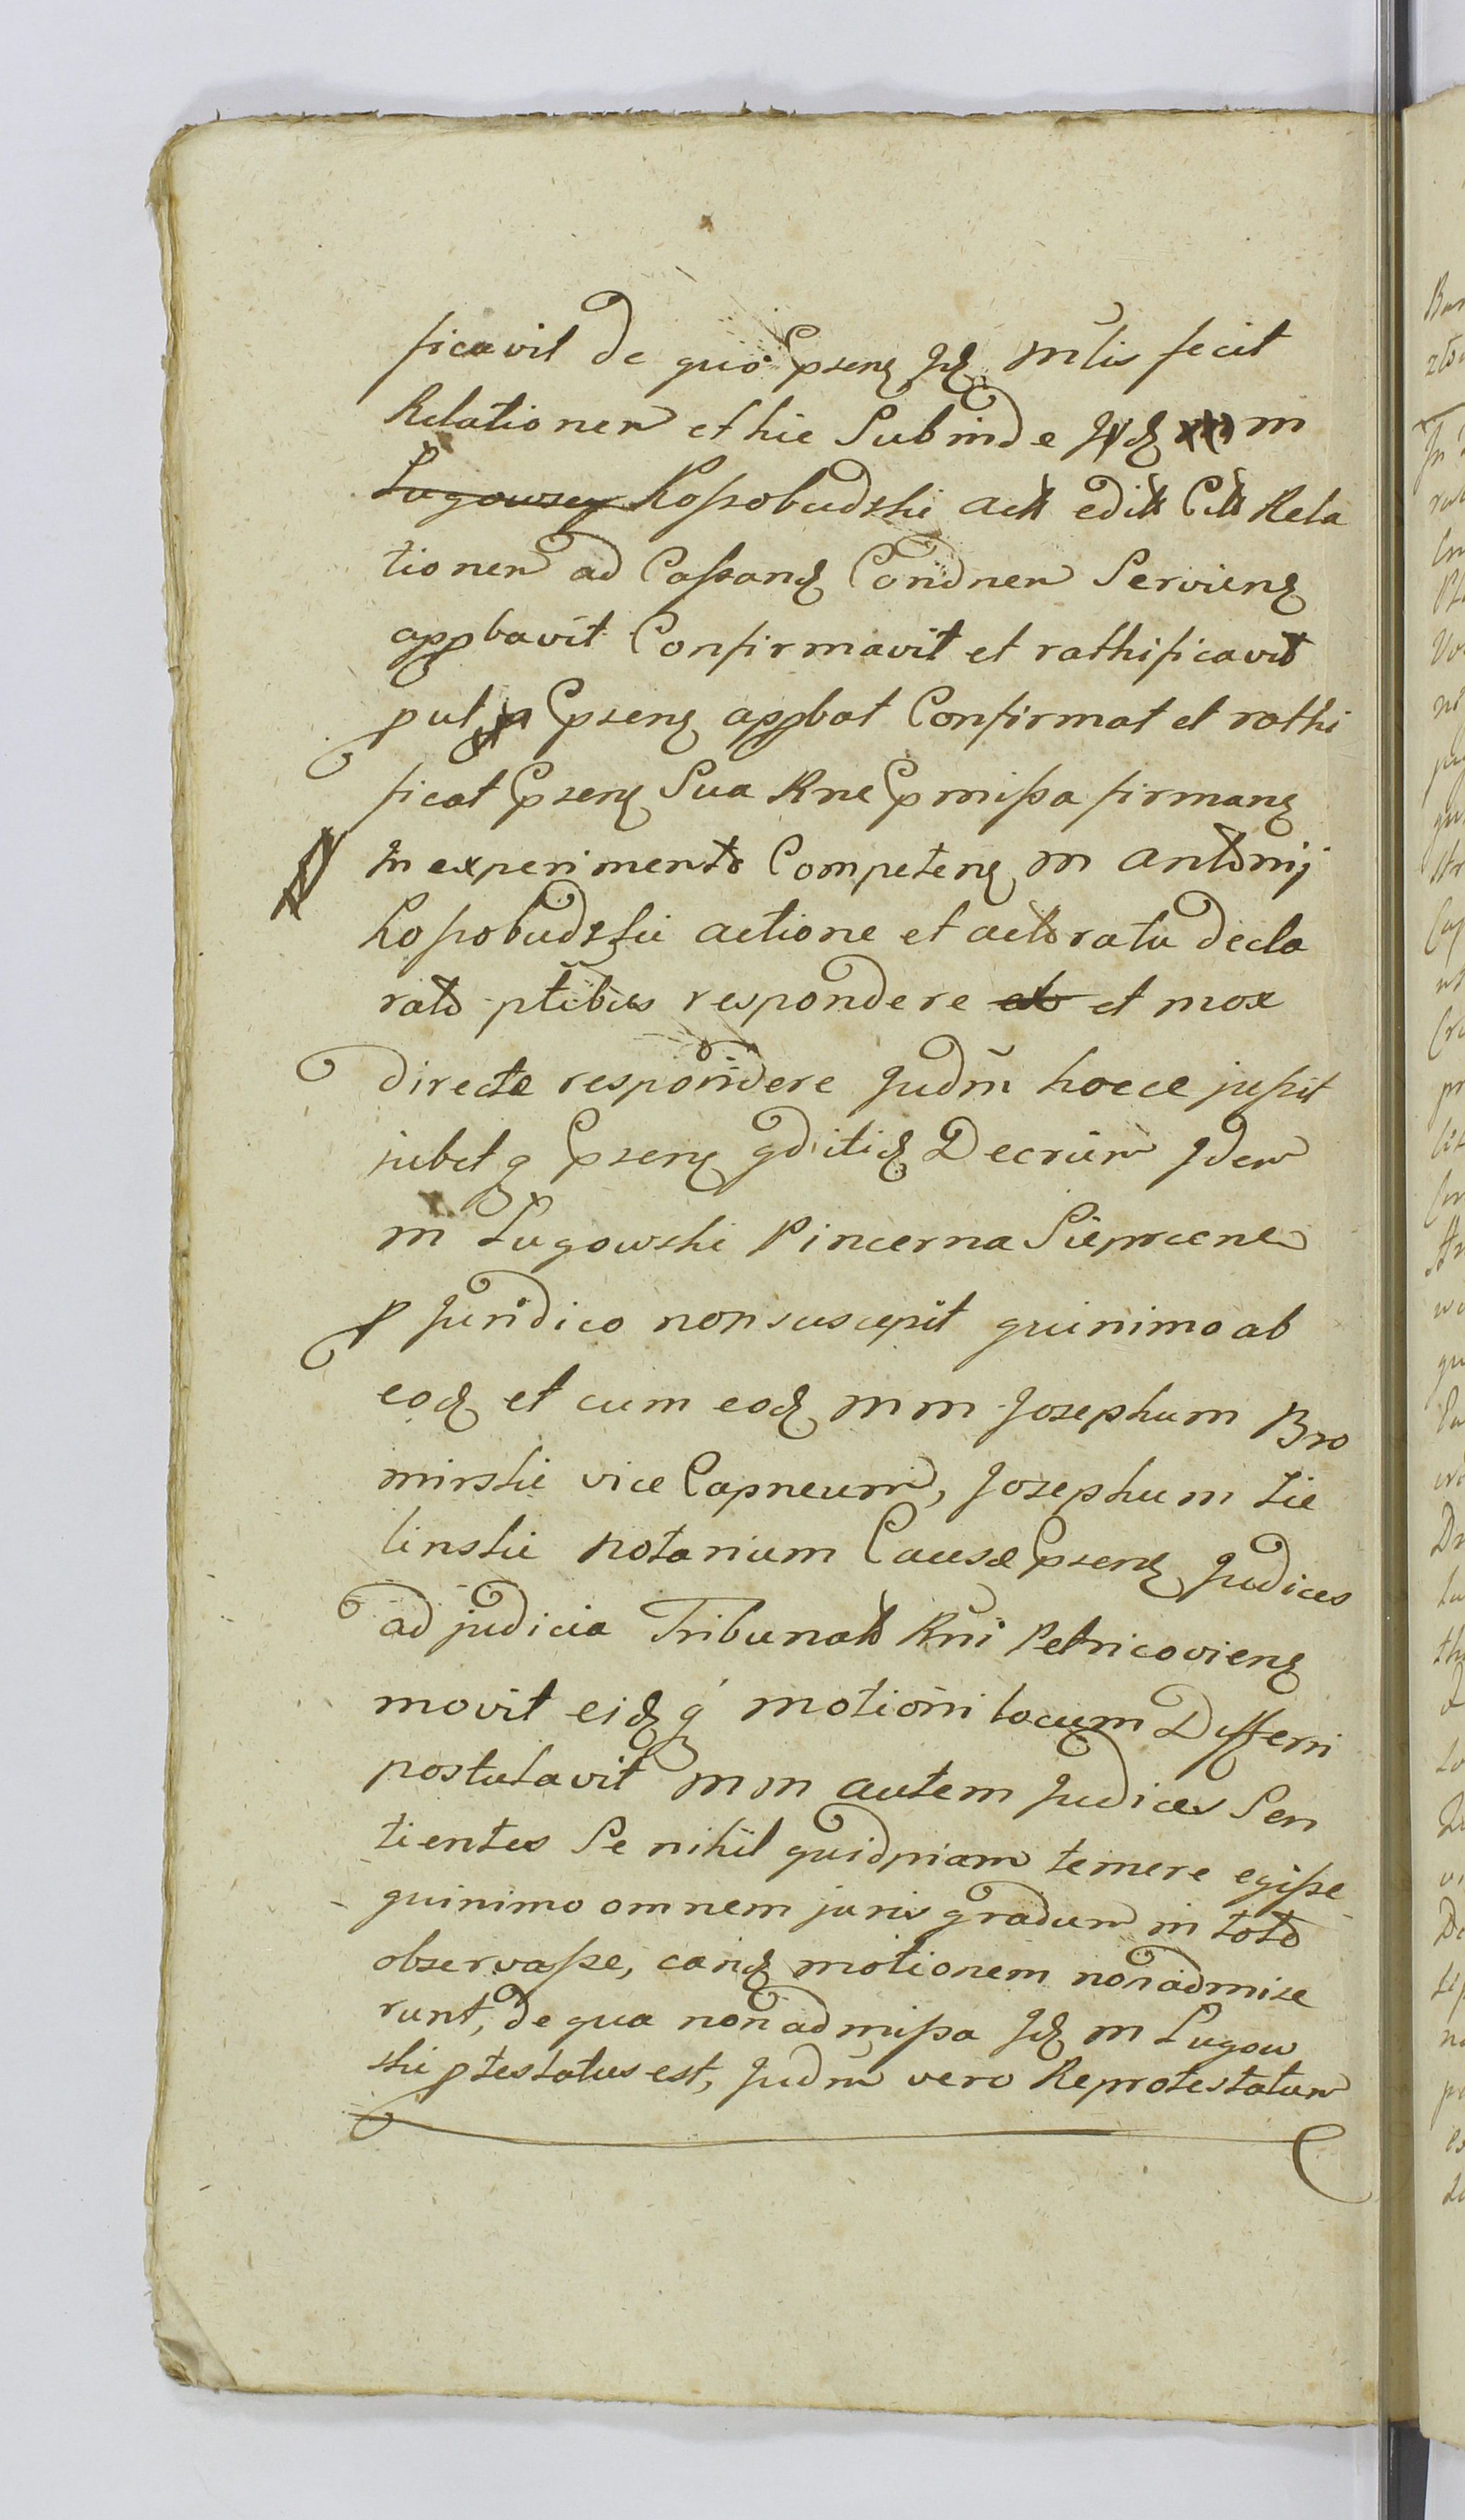 ficavit de quo Pseng Jdg Mlis fecit
Relationem et hic Subinde Jdg m
Lugowsey Kossobudzki actt editt Citt Rela
tionem ad Cassang Condnem Servieng
appbavit Confirmavit et rathificavit
put Pseng appbat Confirmat et rathi
ficat Pseng Sua Rne Pmissa firmang
In experimento Competeng M Antonij
Kossobudzki actione et actoratu decla
rato ptibus respondere et mox
directe respondere Judm hocce jussit
jubet q Pseng qditig Decrum Jdem
M Lugowski Pincerna Sieprcene
p Juridico non suscepit quinimo ab
eodg et cum eodg M M Josephum Bro
mirski vice Capneum, Josephum Zie
linski Notarium Causæ Pseng Judices
ad judicia Tribunalt Rni Petricovieng
movit eidg q motioni locum Differri
postulavit M M autem Judices Sen
tientes Se nihil quidpiam temere egisse
quinimo omnem juris gradum in toto
observasse, eang motionem non admise
runt, de qua non admissa Jdg M Lugow
ski ptestatus est, Judm vero Reprotestatum